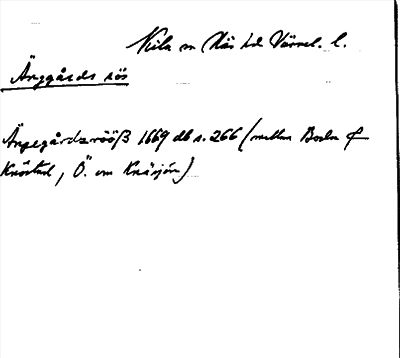 Kila sn Näs hd Värml. l.
Änggårds rös
Ängegårdzrööß 1669 db s. 266 (mellan Boda &
Knöstad, Ö. om Knäsjön)